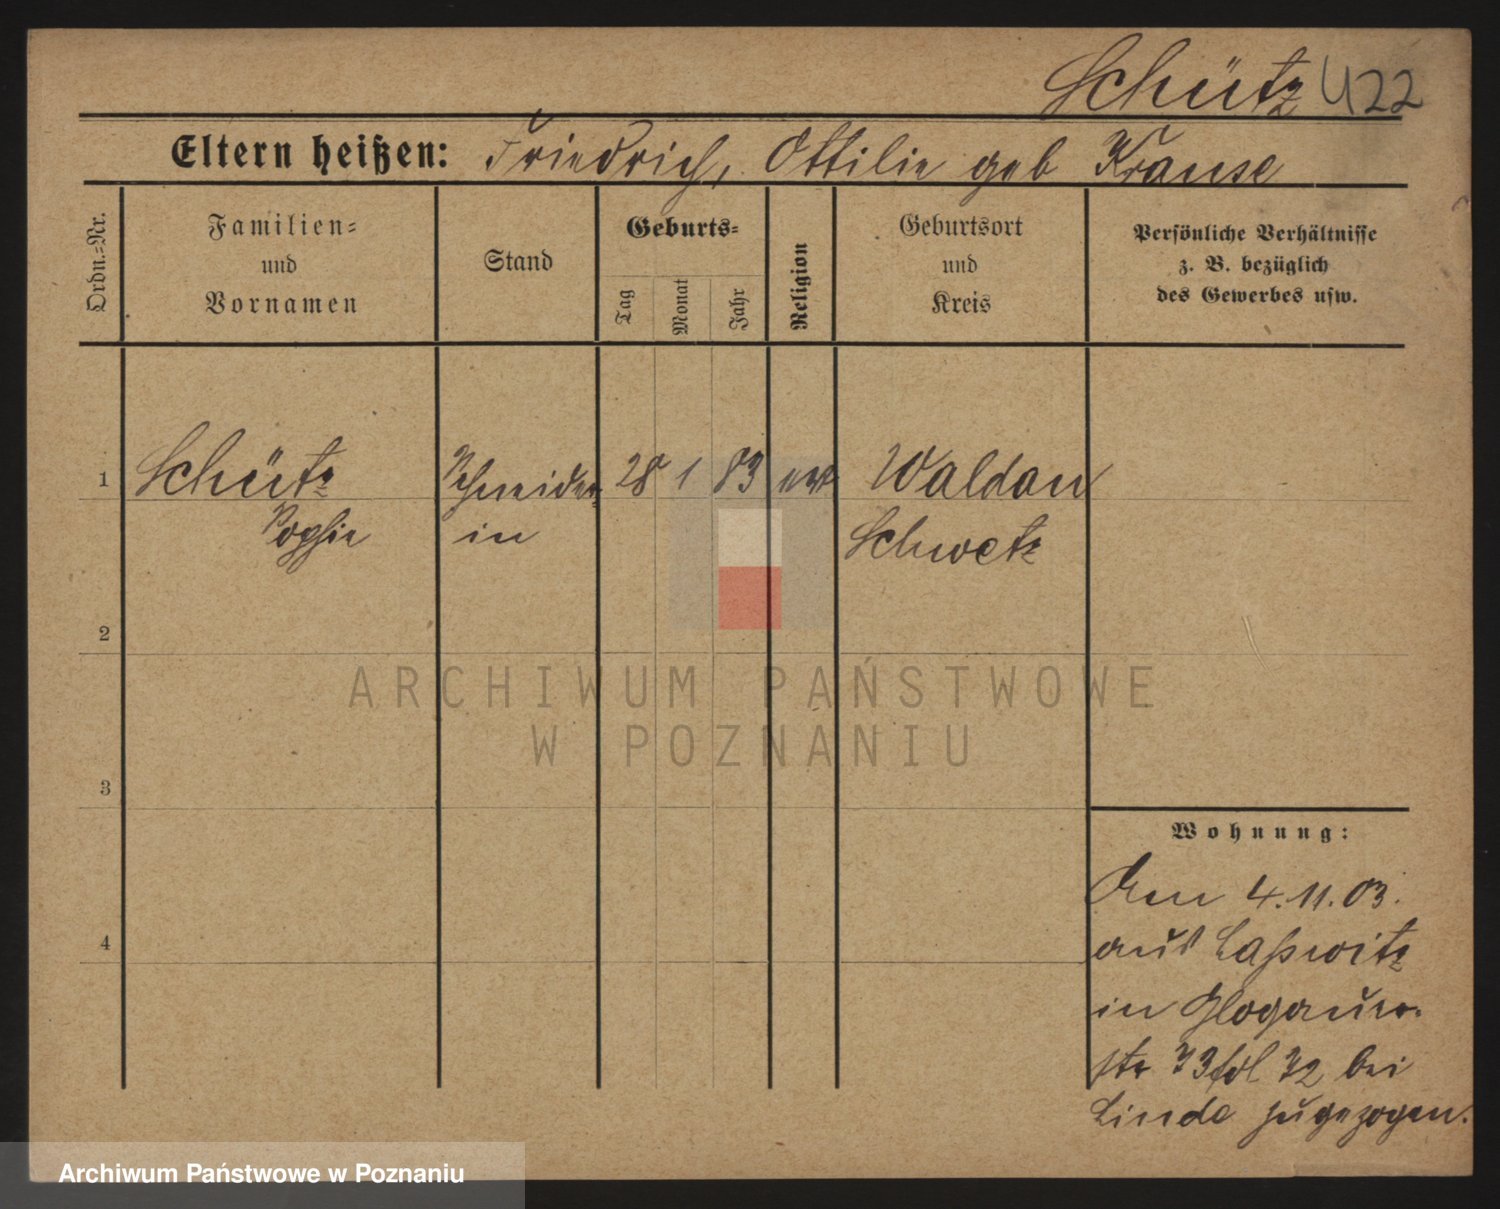 Schütz 422
Eltern heißen: Friedrich, Ottilie geb Krause
Ordn.-Nr.
Familien-
und
Vornamen
Stand
Geburts-
Tag
Monat
Jahr
Religion
Geburtsort
und
Kreis
Persönliche Verhältnisse
z. B. bezüglich
des Gewerbes usw.
1 Schütz Schneider- 28 1 83 ev Waldau
Sophie in Schwetz
2
ARCHIWUM PAŃSTWOWE
W POZNANIU
3
Wohnung:
Am 4.11.03.
aus Laßwitz
in Glogauer-
str 73 72 bei
Linde zugezogen.
4
Archiwum Państwowe w Poznaniu